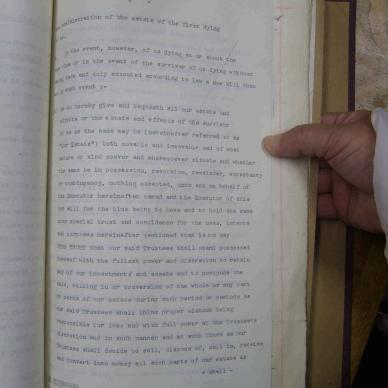 administration of the estate of the first dying
In the event, however, of us dying at or about the
same time or in the event of the survivor of us dying without
having made and duly executed according to law a new Will then
in such event :-
We do hereby give and bequeath all our estate and
effects or the estate and effects of the survivor
of us as the case may be (hereinafter referred to as
"Our Estate") both movable and immovable and of what
nature or kind soever and wheresoever situate and whether
the same be in possession, reversion, remainder, expectancy
or contingency, nothing excepted, unto and on behalf of
the Executor hereinafter named and the Executor of this
our Will for the time being to have and to hold the same
upon special trust and confidence for the uses, intents
and purposes hereinafter mentioned that is to say
UPON TRUST that our said Trustees shall stand possessed
thereof with the fullest power and discretion to retain
any of our investments and assets and to postpone the
sale, calling in or conversion of the whole or any part
or parts of our estate during such period or periods as
our said Trustees shall think proper without being
responsible for loss and with full power at the Trustees
discretion and in such manner and at such times as our
Trustees shall decide to sell, dispose of, call in, receive
and convert into money all such parts of our estate as
- shall -